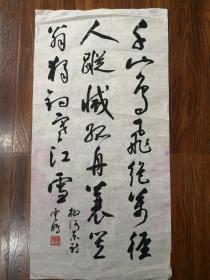 千山鸟飞绝万径
人踪灭孤舟蓑笠
翁独钓寒江雪
柳河东诗